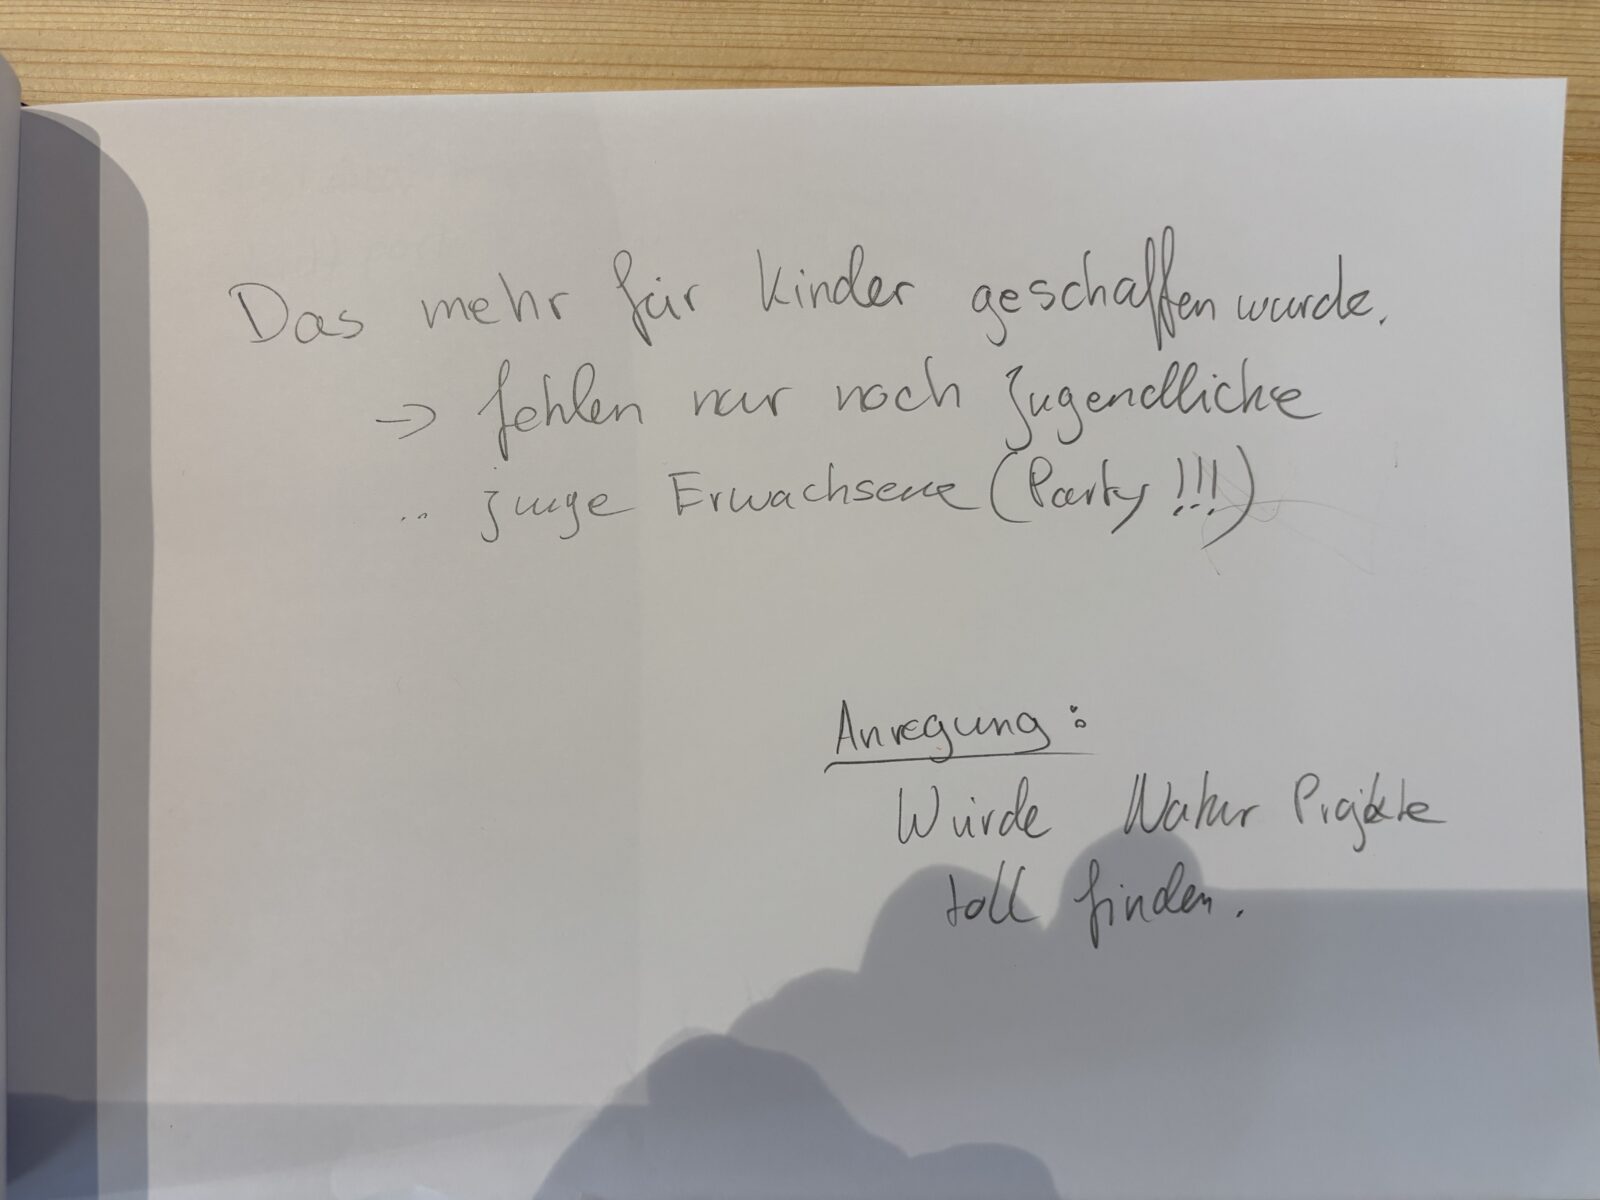 Das mehr für Kinder geschaffen wurde.
→ fehlen nur noch Jugendliche
.. junge Erwachsene (Party !!!)
Anregung:
Würde Natur Projekte
toll finden.